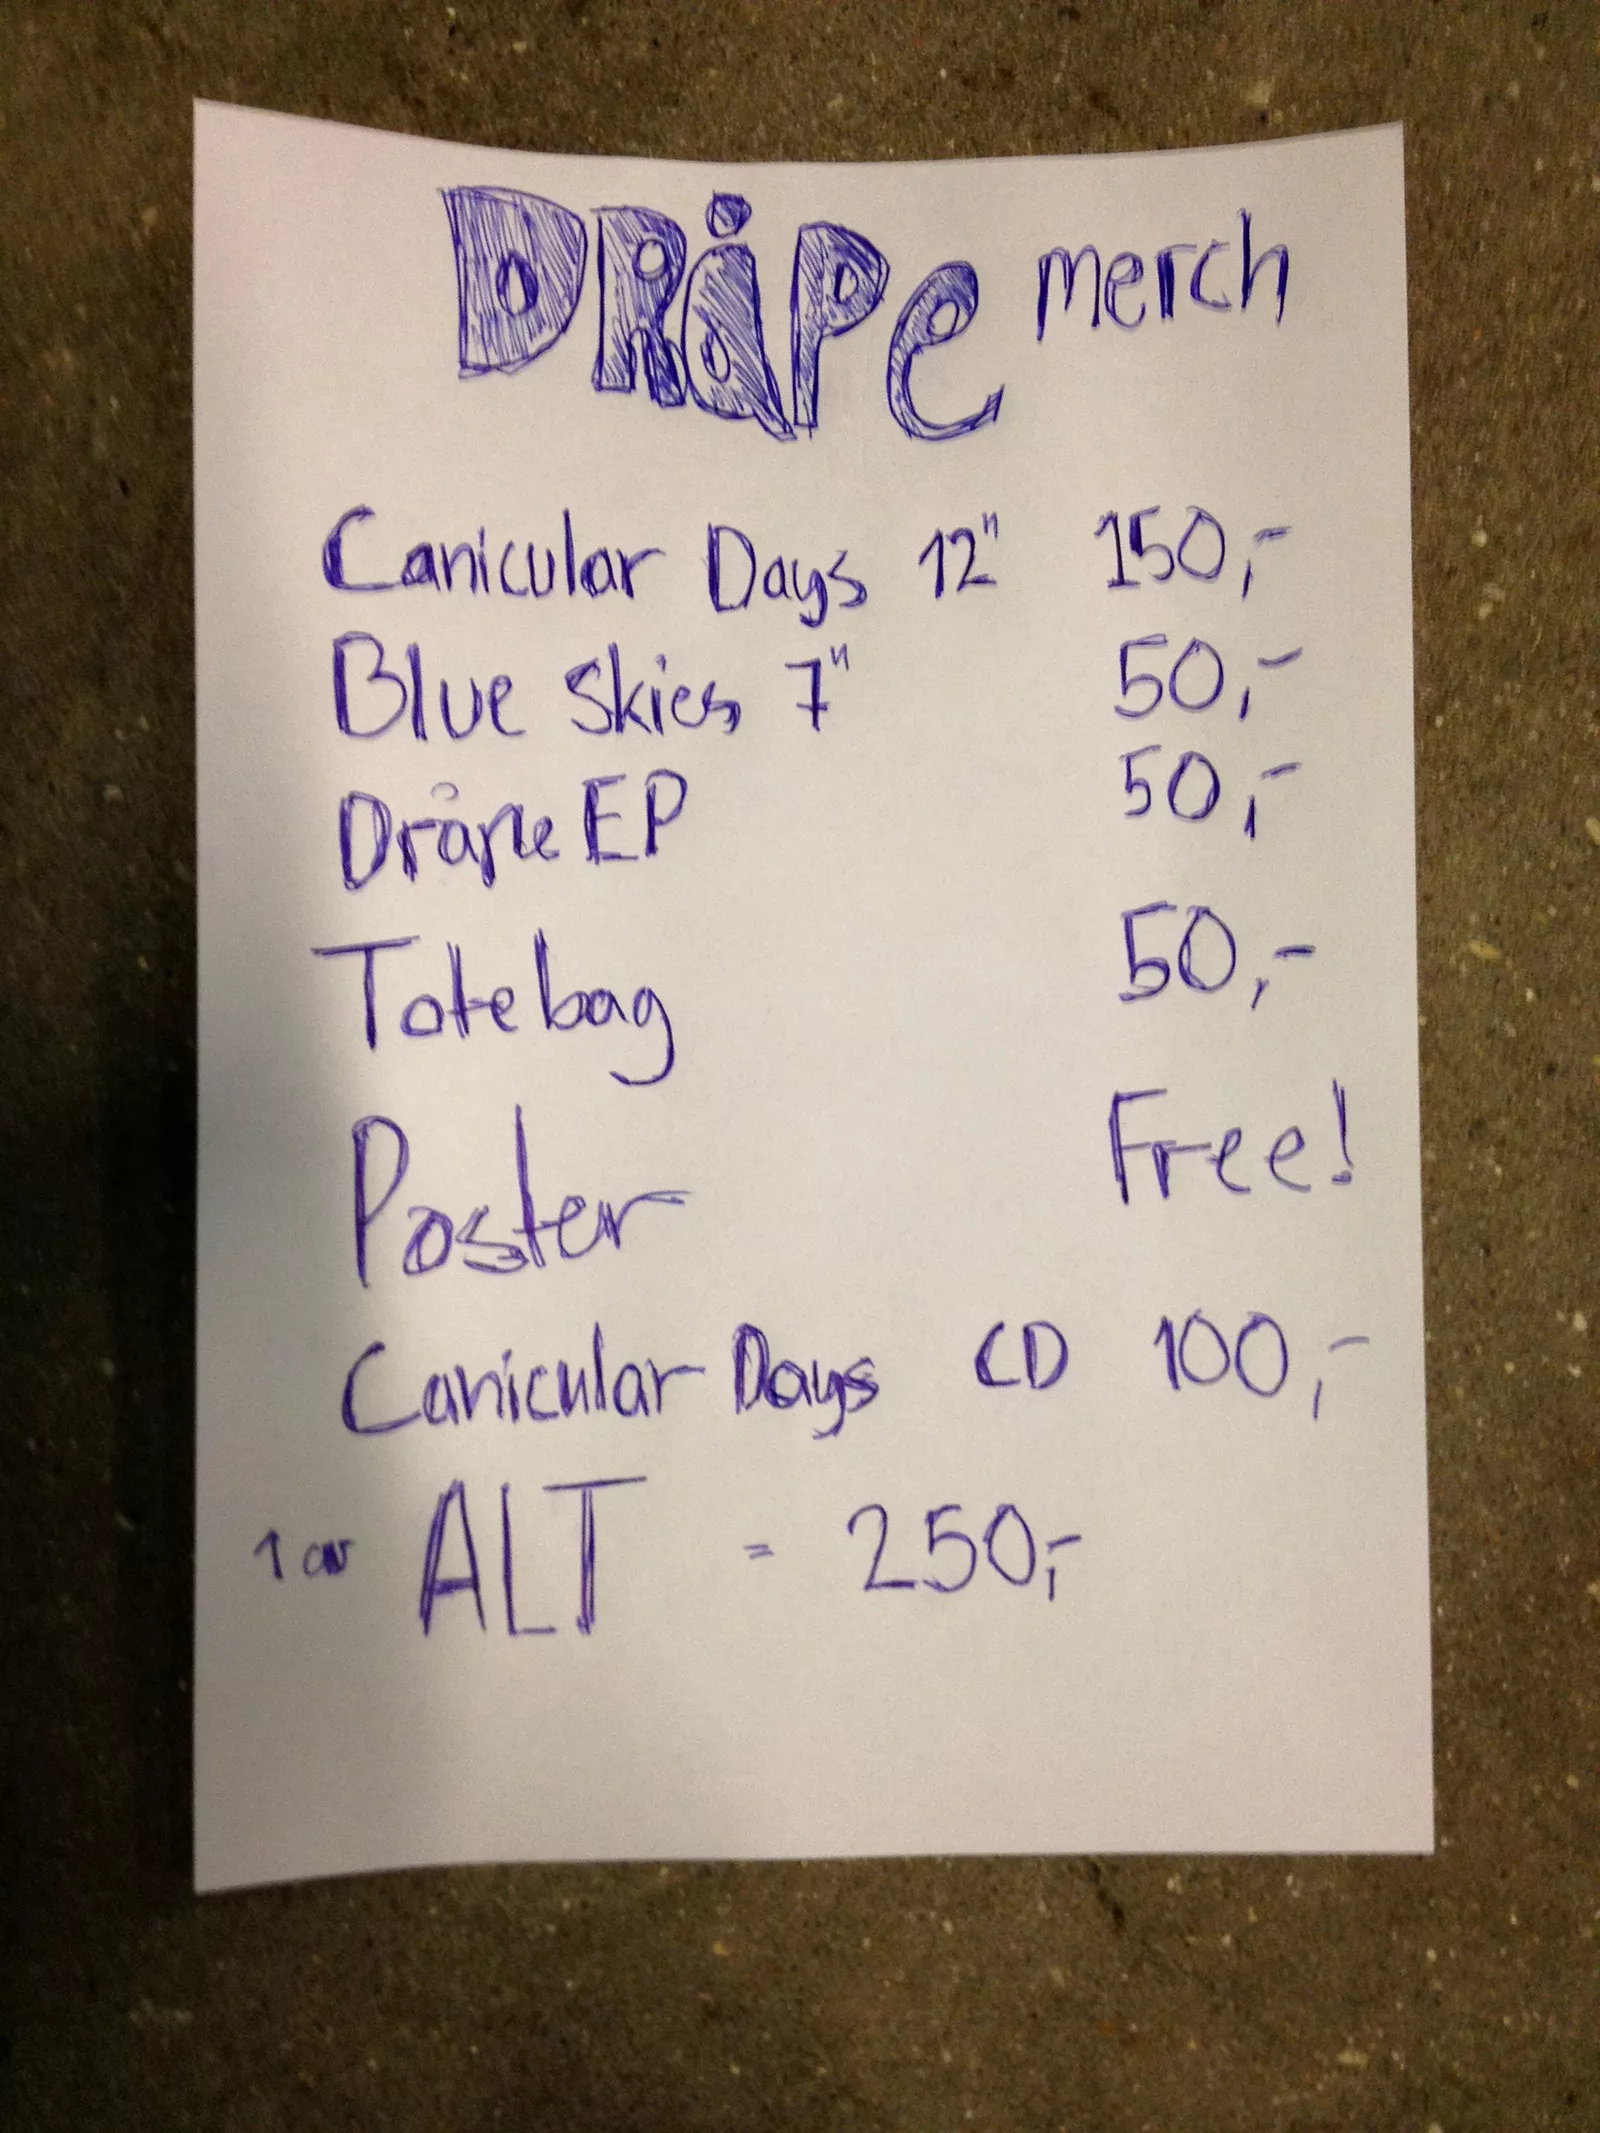 DRåPe merch
Canicular Days 12" 150,-
Blue Skies 7" 50,-
Dråpe EP 50,-
Totebag 50,-
Poster Free!
Canicular Days CD 100,-
1 av ALT = 250,-